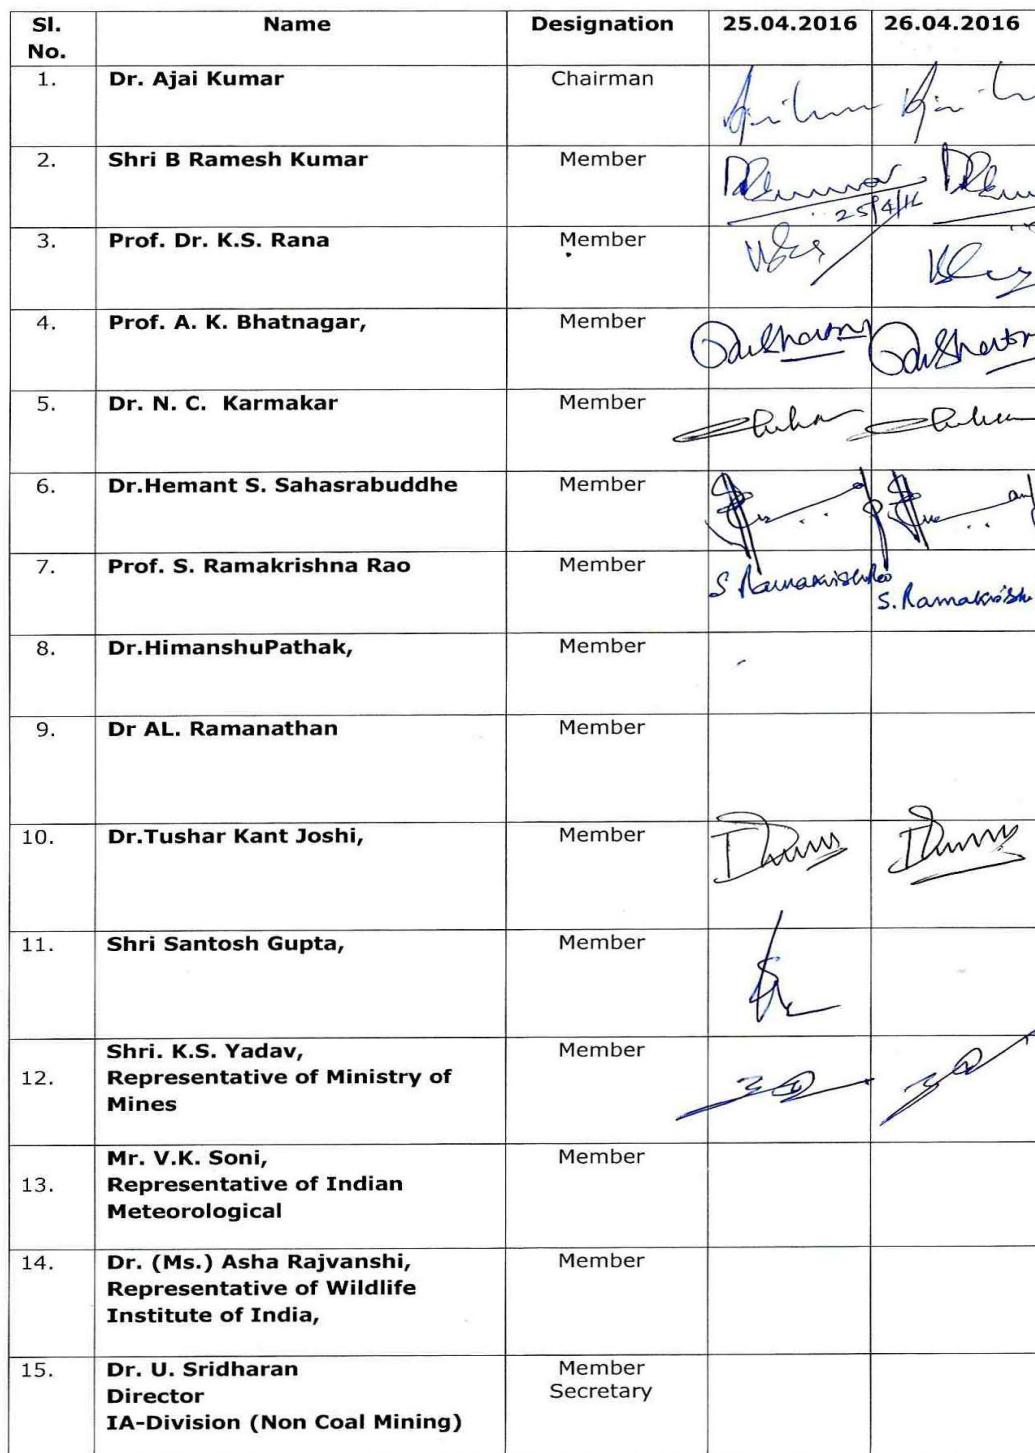 Sl. No. Name Designation 25.04.2016 26.04.2016
1. Dr. Ajai Kumar Chairman
2. Shri B Ramesh Kumar Member
25/4/16
3. Prof. Dr. K.S. Rana Member
4. Prof. A. K. Bhatnagar, Member
5. Dr. N. C. Karmakar Member
6. Dr.Hemant S. Sahasrabuddhe Member
7. Prof. S. Ramakrishna Rao Member
8. Dr.HimanshuPathak, Member
9. Dr AL. Ramanathan Member
10. Dr.Tushar Kant Joshi, Member
11. Shri Santosh Gupta, Member
Shri. K.S. Yadav, Member
12. Representative of Ministry of
Mines
Mr. V.K. Soni, Member
13. Representative of Indian
Meteorological
14. Dr. (Ms.) Asha Rajvanshi, Member
Representative of Wildlife
Institute of India,
15. Dr. U. Sridharan Member
Director Secretary
IA-Division (Non Coal Mining)